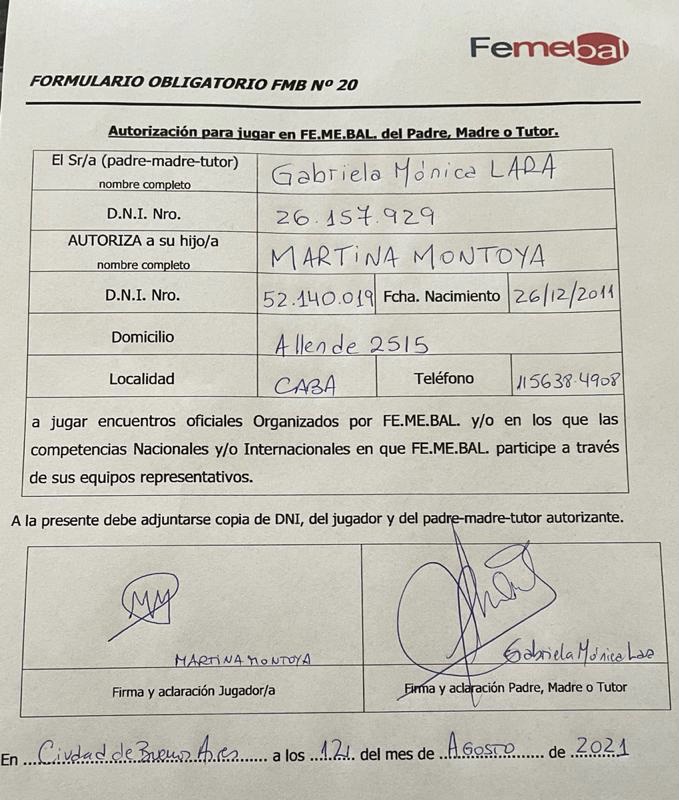 Femebal
FORMULARIO OBLIGATORIO FMB Nº 20
Autorización para jugar en FE.ME.BAL. del Padre, Madre o Tutor.
El Sr/a (padre-madre-tutor) nombre completo Gabriela Mónica LARA
D.N.I. Nro. 26.157.929
AUTORIZA a su hijo/a nombre completo MARTiNA MONTOYA
D.N.I. Nro. 52.140.019 Fcha. Nacimiento 26/12/2011
Domicilio Allende 2515
Localidad CABA Teléfono 115638.4908
a jugar encuentros oficiales Organizados por FE.ME.BAL. y/o en los que las
competencias Nacionales y/o Internacionales en que FE.ME.BAL. participe a través
de sus equipos representativos.
A la presente debe adjuntarse copia de DNI, del jugador y del padre-madre-tutor autorizante.
MM
MARTiNA MONTOYA
Gabriela Mónica Lara
Firma y aclaración Jugador/a
Firma y aclaración Padre, Madre o Tutor
En Ciudad de Buenos Aires a los 12 del mes de AGOSTO de 2021